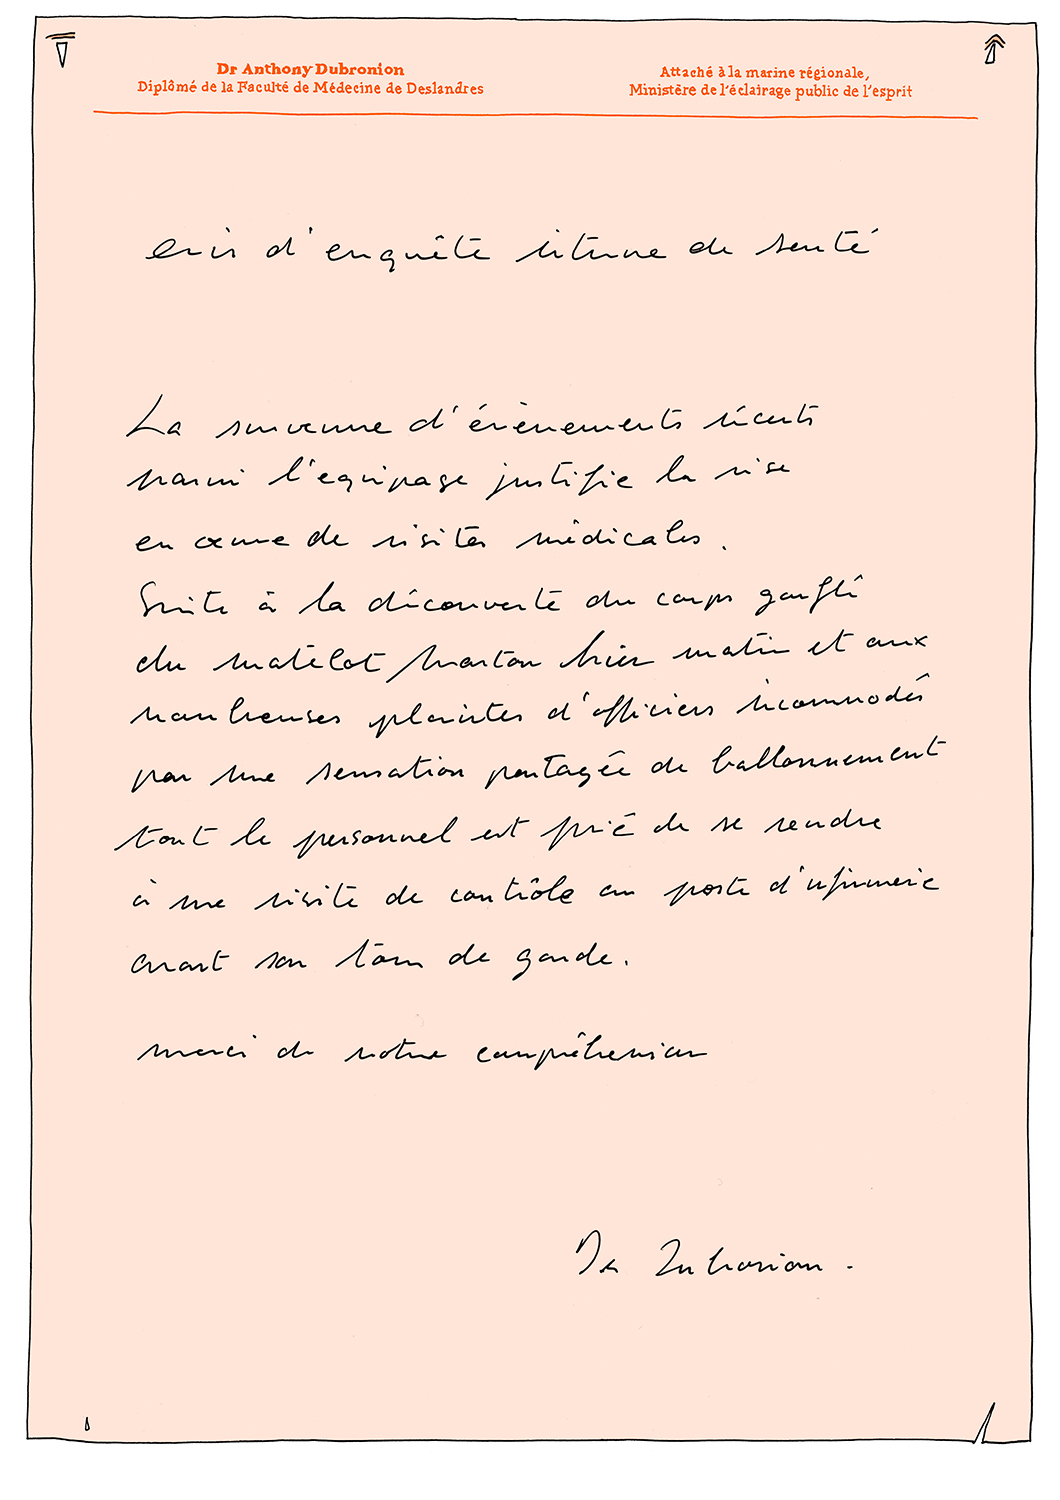 Dr Anthony Dubronion
Diplômé de la Faculté de Médecine de Deslandres
Attaché à la marine régionale,
Ministère de l'éclairage public de l'esprit
avis d'enquête interne de santé
La survenue d'évènements récents
parmi l'equipage justifie la mise
en œuvre de visites médicales.
Suite à la découverte du corps gonflé
du matelot hier matin et aux
nombreuses plaintes d'officiers incommodés
par une sensation partagée de ballonnement
tout le personnel est prié de se rendre
à une visite de contrôle au poste d'infirmerie
avant son tour de garde.
merci de votre compréhension
Dr Dubronion.